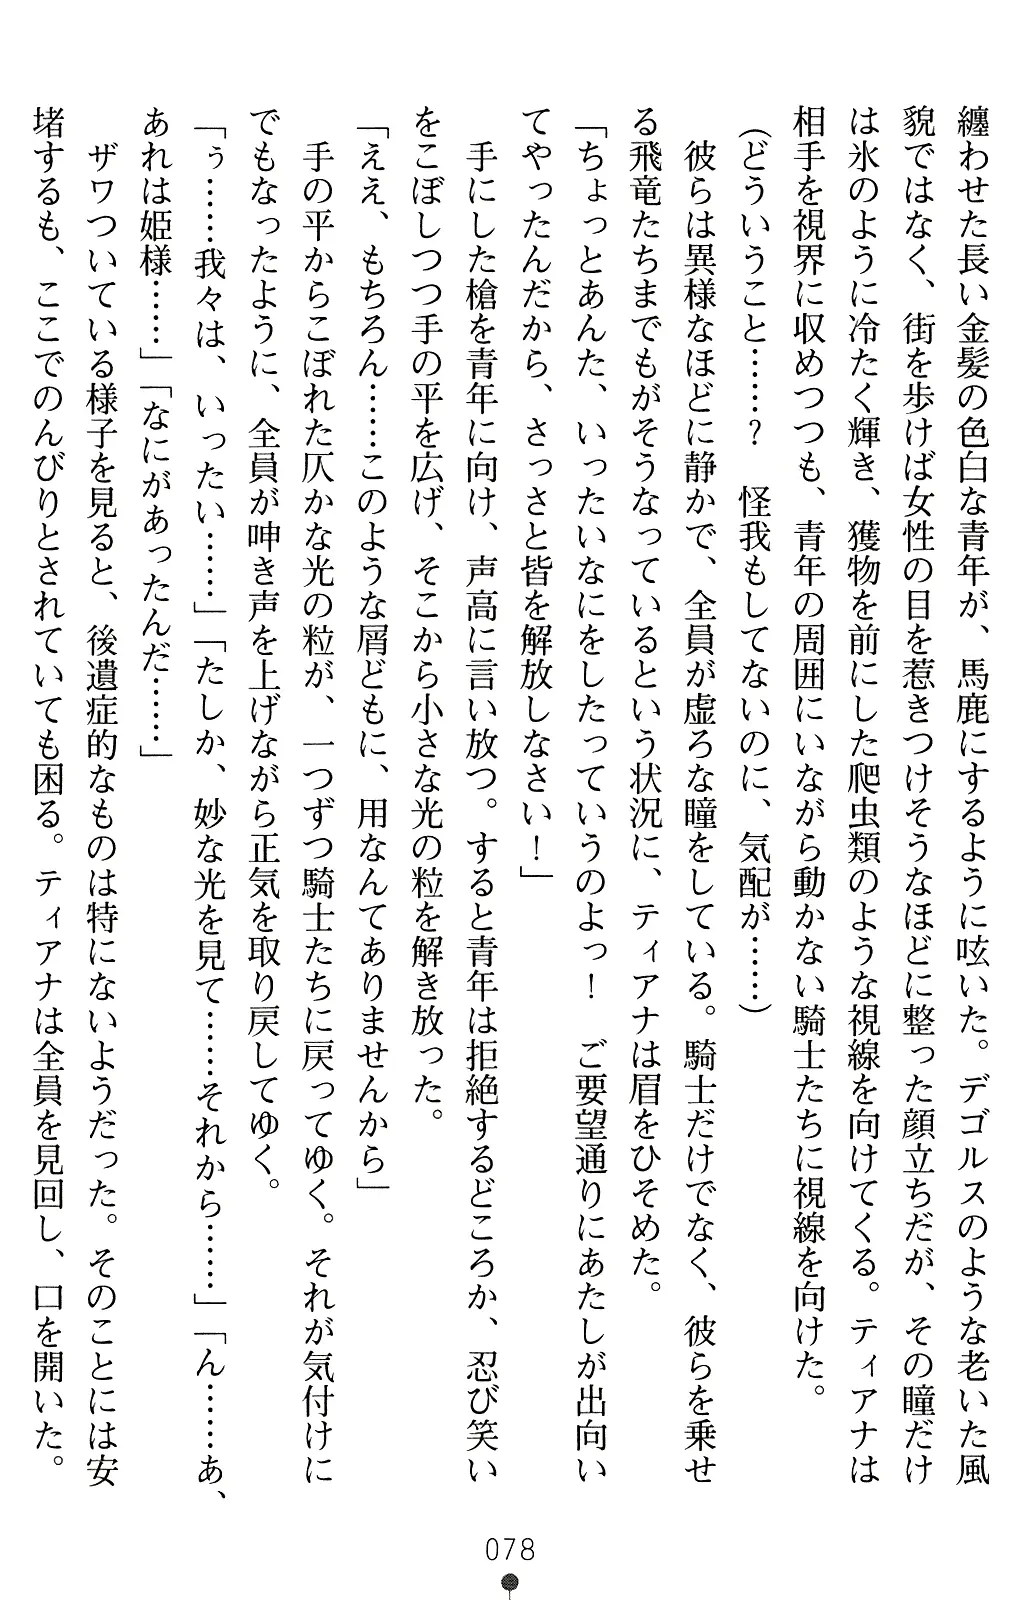 纏わせた長い金髪の色白な青年が、馬鹿にするように呟いた。デゴルスのような老いた風
貌ではなく、街を歩けば女性の目を惹きつけそうなほどに整った顔立ちだが、その瞳だけ
は氷のように冷たく輝き、獲物を前にした爬虫類のような視線を向けてくる。ティアナは
相手を視界に収めつつも、青年の周囲にいながら動かない騎士たちに視線を向けた。
（どういうこと……？　怪我もしてないのに、気配が……）
　彼らは異様なほどに静かで、全員が虚ろな瞳をしている。騎士だけでなく、彼らを乗せ
る飛竜たちまでもがそうなっているという状況に、ティアナは眉をひそめた。
「ちょっとあんた、いったいなにをしたっていうのよっ！　ご要望通りにあたしが出向い
てやったんだから、さっさと皆を解放しなさい！」
　手にした槍を青年に向け、声高に言い放つ。すると青年は拒絶するどころか、忍び笑い
をこぼしつつ手の平を広げ、そこから小さな光の粒を解き放った。
「ええ、もちろん……このような屑どもに、用なんてありませんから」
　手の平からこぼれた仄かな光の粒が、一つずつ騎士たちに戻ってゆく。それが気付けに
でもなったように、全員が呻き声を上げながら正気を取り戻してゆく。
「ぅ……我々は、いったい……」「たしか、妙な光を見て……それから……」「ん……あ、
あれは姫様……」「なにがあったんだ……」
　ザワついている様子を見ると、後遺症的なものは特にないようだった。そのことには安
堵するも、ここでのんびりとされていても困る。ティアナは全員を見回し、口を開いた。
078